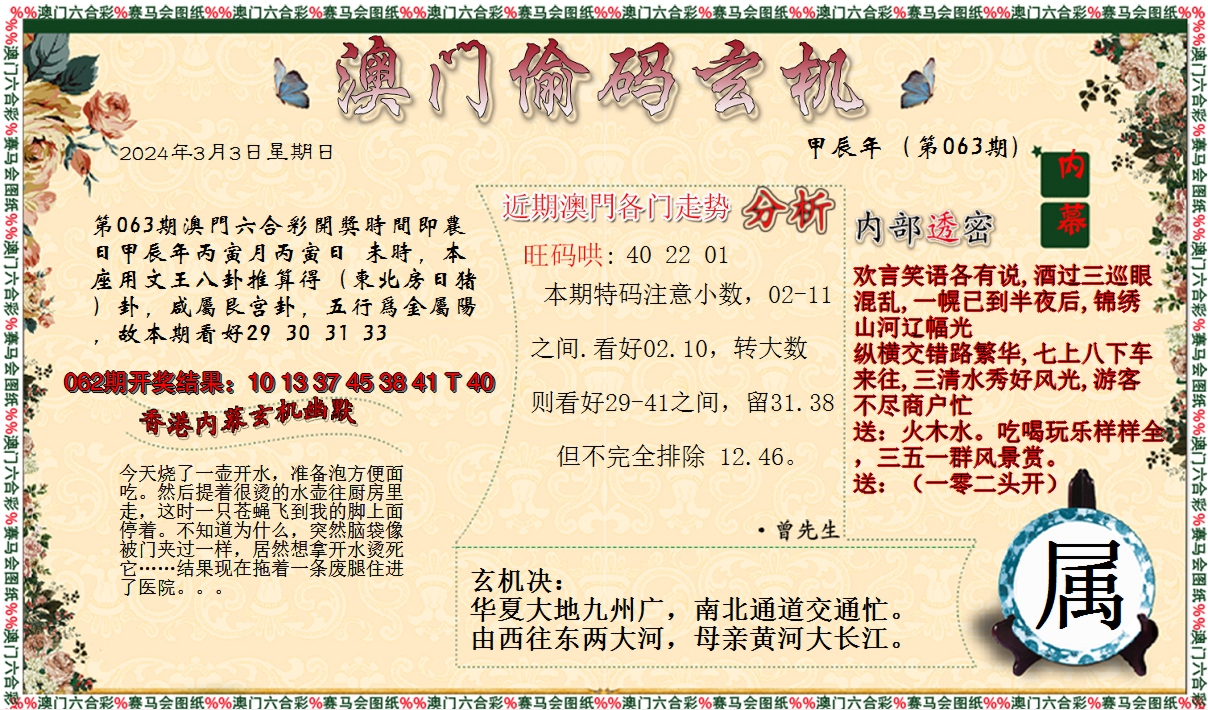 %%澳门六合彩%赛马会图纸%%澳门六合彩%赛马会图纸%%澳门六合彩%赛马会图纸%%澳门六合彩%赛马会图纸%%澳门六合彩%赛马会图纸%%澳门六合彩%赛马会图纸%%
澳门偷码玄机
2024年3月3日星期日
甲辰年（第063期）
内
幕
第063期澳門六合彩開獎時間即農
日甲辰年丙寅月丙寅日 未時，本
座用文王八卦推算得（東北房日猪
）卦，咸屬艮宫卦，五行爲金屬陽
，故本期看好29 30 31 33
062期开奖结果：10 13 37 45 38 41 T 40
香港内幕玄机幽默
今天烧了一壶开水，准备泡方便面
吃。然后提着很烫的水壶往厨房里
走，这时一只苍蝇飞到我的脚上面
停着。不知道为什么，突然脑袋像
被门夹过一样，居然想拿开水烫死
它……结果现在拖着一条废腿住进
了医院。。。
近期澳門各门走势 分析
旺码哄: 40 22 01
本期特码注意小数，02-11
之间.看好02.10，转大数
则看好29-41之间，留31.38
但不完全排除 12.46。
·曾先生
内部透密
欢言笑语各有说,酒过三巡眼
混乱,一幌已到半夜后,锦绣
山河辽幅光
纵横交错路繁华,七上八下车
来往,三清水秀好风光,游客
不尽商户忙
送：火木水。吃喝玩乐样样全
，三五一群风景赏。
送：（一零二头开）
玄机决：
华夏大地九州广，南北通道交通忙。
由西往东两大河，母亲黄河大长江。
属
%%澳门六合彩%赛马会图纸%%澳门六合彩%赛马会图纸%%澳门六合彩%赛马会图纸%%澳门六合彩%赛马会图纸%%澳门六合彩%赛马会图纸%%澳门六合彩%赛马会图纸%%
%%澳门六合彩%赛马会图纸%%澳门六合彩%赛马会图纸%%澳门六合彩%赛马会图纸%%澳门六合彩
%%澳门六合彩%赛马会图纸%%澳门六合彩%赛马会图纸%%澳门六合彩%赛马会图纸%%澳门六合彩